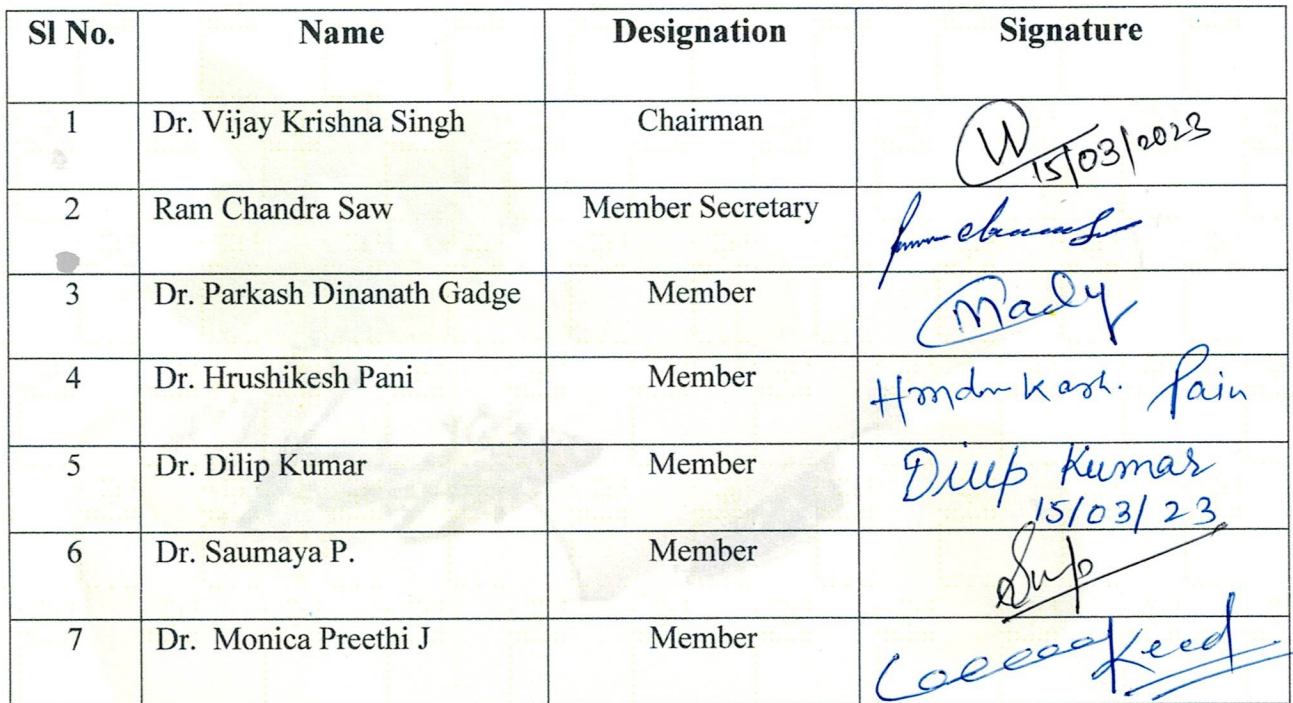 Sl No. Name Designation Signature
1 Dr. Vijay Krishna Singh Chairman
15/03/2023
2 Ram Chandra Saw Member Secretary
3 Dr. Parkash Dinanath Gadge Member
4 Dr. Hrushikesh Pani Member
5 Dr. Dilip Kumar Member Dilip Kumar
15/03/23
6 Dr. Saumaya P. Member
7 Dr. Monica Preethi J Member